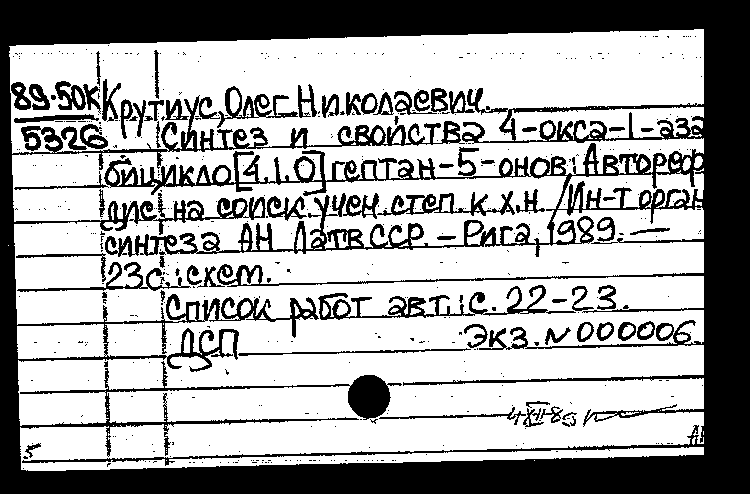 89-50К Крутиус, Олег Николаевич.
5326 Синтез и свойства 4-окса-1-аза
бицикло[4.1.0]гептан-5-онов: Автореф
дис. на соиск. учен. степ. к.х.н. /Ин-т орган
синтеза АН ЛатвССР. - Рига, 1989. -
23с.: схем.
Список работ авт.: с. 22-23.
ДСП Экз. N 000006
5